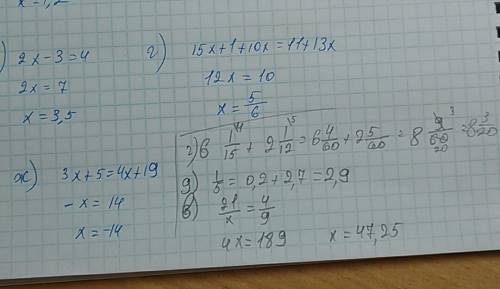 ) 2x-3=4
2x=7
x=3,5
г) 15x+1+10x=11+13x
12x=10
x=5/6
ж) 3x+5=4x+19
-x=14
x=-14
г) 6 1/15 + 2 1/12 = 6 4/60 + 2 5/60 = 8 9/60 = 8 3/20
g) 1/5 = 0,2+2,7=2,9
в) 21/x = 4/9
4x=189 x=47,25